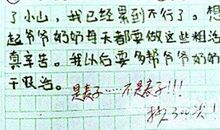 了小山，我已经累到不行了。想
起爷爷奶奶每天都要做这些粗活
真辛苦。我以后要多帮爷爷奶奶的
干吸浩。
是麦子……不是表子!!!
抄300次